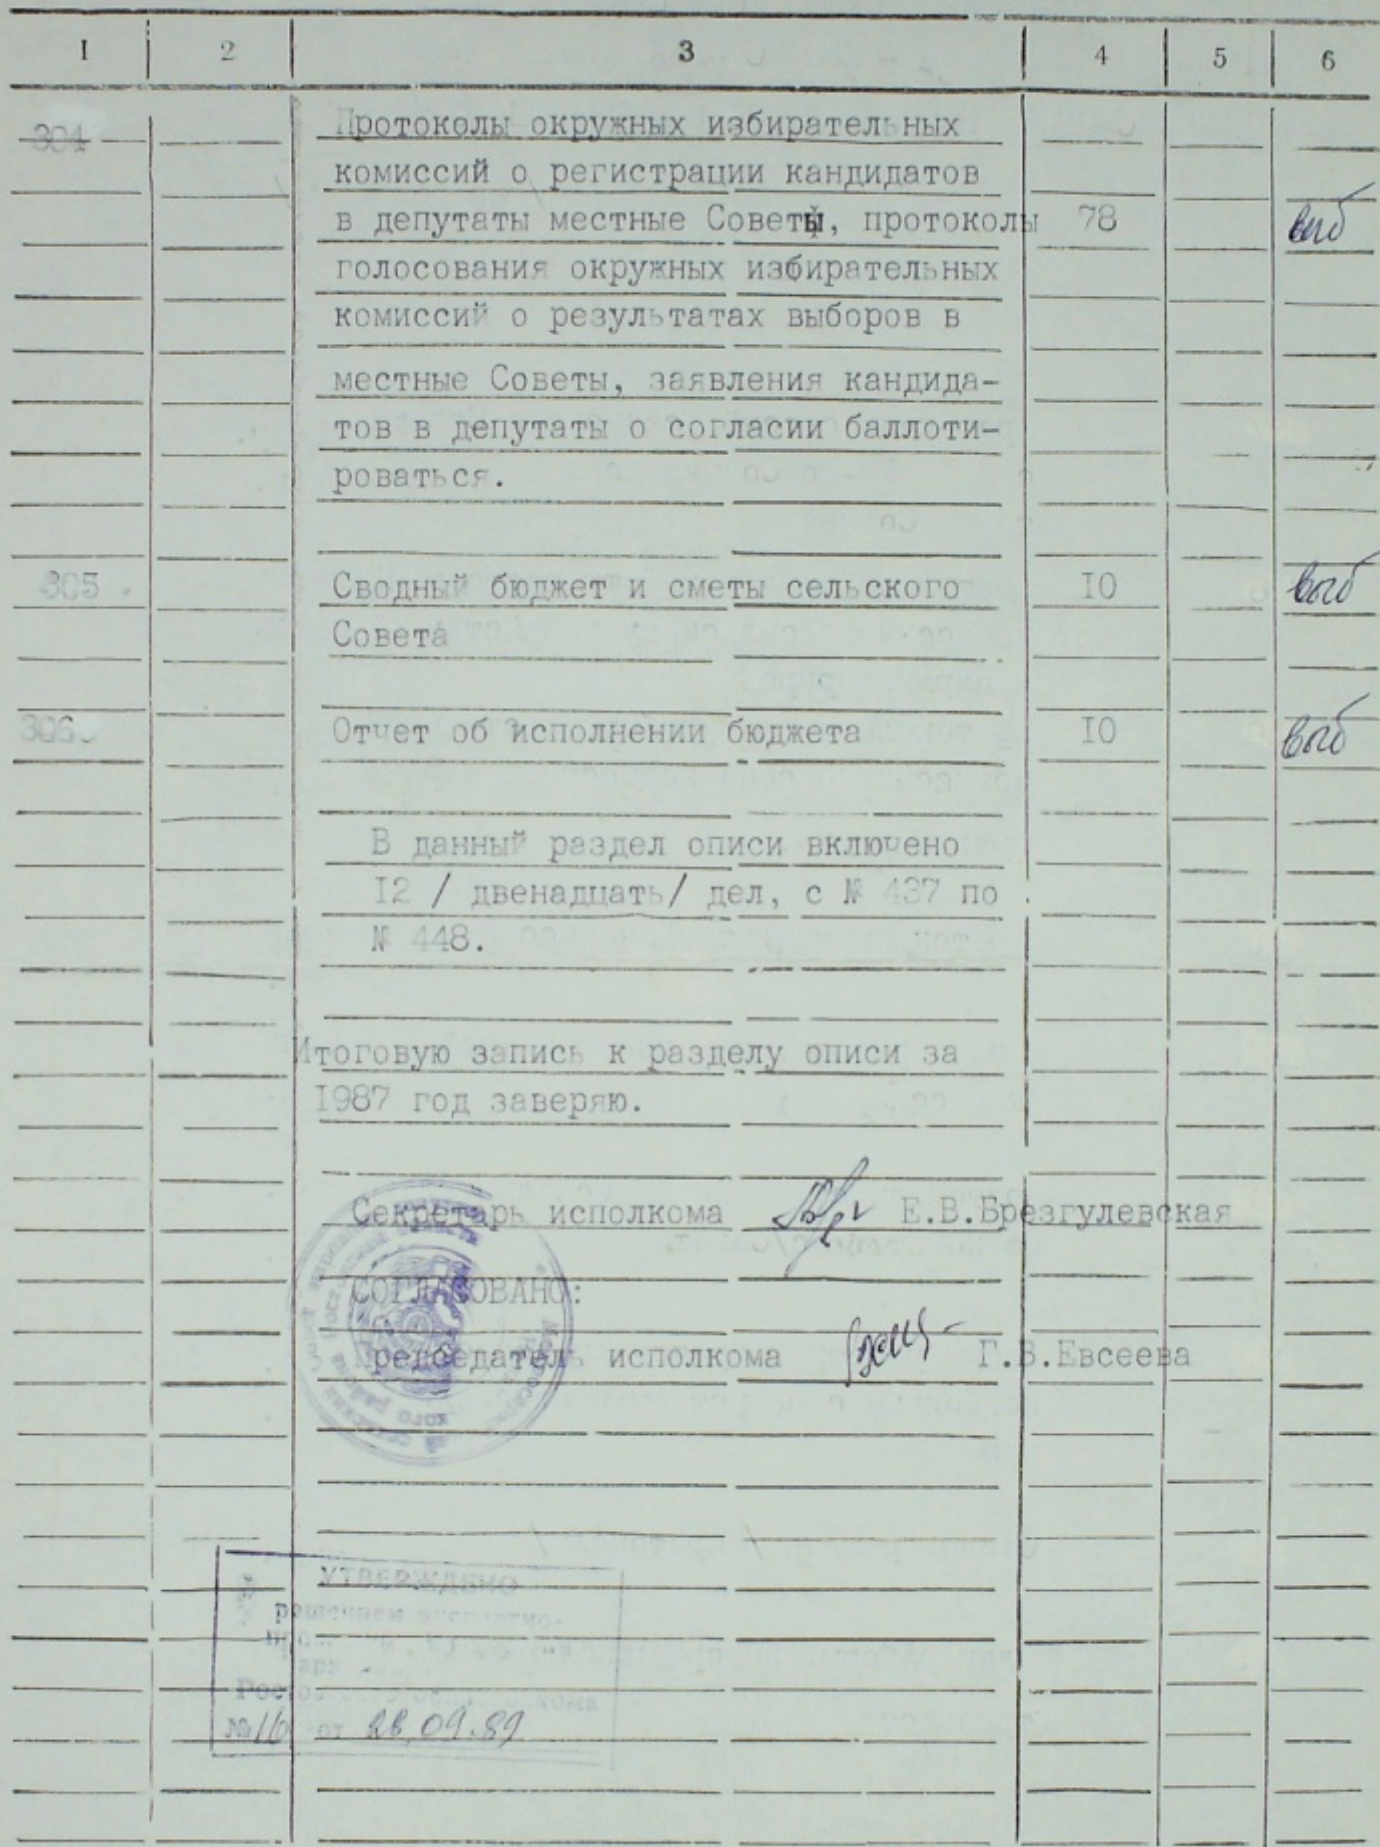 I 2 3 4 5 6
304 Протоколы окружных избирательных
комиссий о регистрации кандидатов
в депутаты местные Советы, протоколы 78 выб
голосования окружных избирательных
комиссий о результатах выборов в
местные Советы, заявления кандида-
тов в депутаты о согласии баллоти-
роваться.
305 Сводный бюджет и сметы сельского I0 выб
Совета
306 Отчет об исполнении бюджета I0 выб
В данный раздел описи включено
I2 / двенадцать/ дел, с № 437 по
№ 448.
Итоговую запись к разделу описи за
I987 год заверяю.
Секретарь исполкома Е.В.Брезгулевская
СОГЛАСОВАНО:
Председатель исполкома Г.В.Евсеева
УТВЕРЖДЕНО
решением экспертно-
№ 16 от 28.09.89